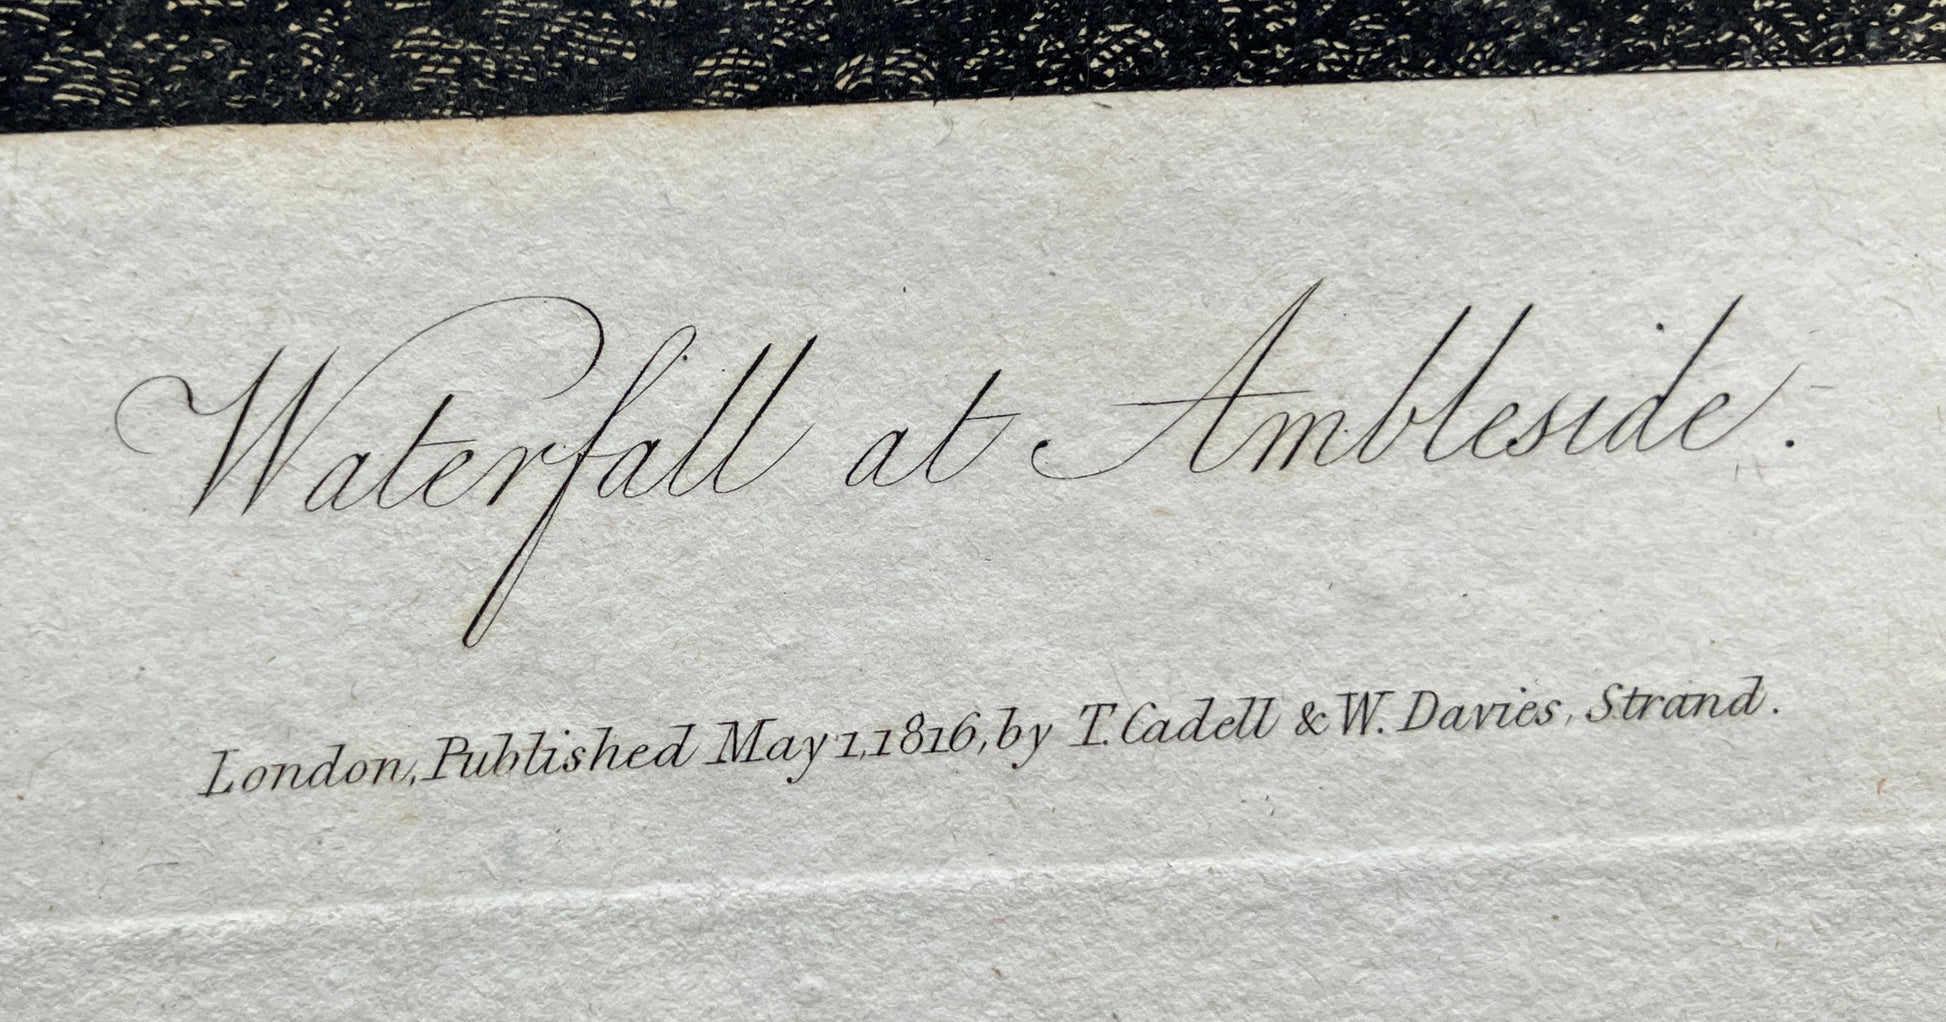 Waterfall at Ambleside.
London, Published May 1, 1816, by T. Cadell & W. Davies, Strand.